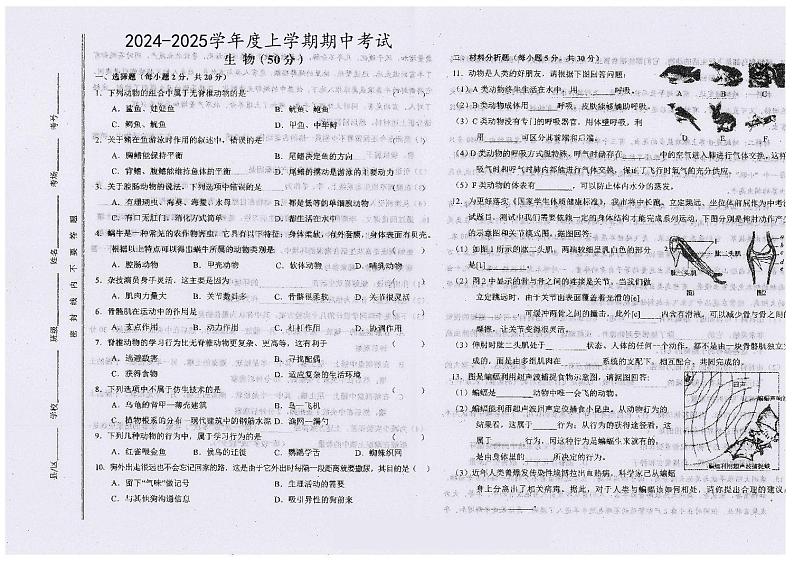 2024-2025学年度上学期期中考试
生 物（50分）
一、选择题（每小题2分，共20分）
1. 下列动物的组合中属于无脊椎动物的是 （ ）
A. 鲨鱼、娃娃鱼 B. 鱿鱼、鲍鱼
C. 鳄鱼、鱿鱼 D. 甲鱼、中华鲟
2. 关于鲫鱼游泳时作用的叙述中，错误的是 （ ）
A. 胸鳍能保持平衡 B. 尾鳍决定鱼的方向
C. 背鳍、腹鳍能维持鱼体的平衡 D. 尾鳍的摆动是游泳的主要动力
3. 关于腔肠动物的说法，下列选项中错误的是 （ ）
A. 有珊瑚虫、海葵、海蜇、水母 B. 都是低等的单细胞动物
C. 有口无肛门，消化方式简单 D. 都生活在水中
4. 蜗牛是一种常见的农作物害虫，它具有以下特征：身体柔软，有外套膜，身体表面有贝壳。
根据以上特点可以得出蜗牛所属动物类别是 （ ）
A. 腔肠动物 B. 甲壳动物 C. 软体动物 D. 哺乳动物
5. 杂技演员身子灵活，这主要是因为 （ ）
A. 肌肉力量大 B. 关节数目多 C. 骨骼很柔软 D. 关节很灵活
6. 骨骼肌在运动中的作用是 （ ）
A. 支点作用 B. 动力作用 C. 杠杆作用 D. 协调作用
7. 脊椎动物的学习行为比无脊椎动物更复杂、更高等，这有利于 （ ）
A. 逃避敌害 B. 寻找配偶
C. 获得食物 D. 适应复杂的生活环境
8. 下列选项中不属于仿生技术的是 （ ）
A. 乌龟的背甲—薄壳建筑 B. 鸟—飞机
C. 植物根系的分布—现代建筑中的钢筋水泥 D. 渔网—漏勺
9. 下列几种动物的行为中，属于学习行为的是 （ ）
A. 红雀喂金鱼 B. 候鸟的迁徙 C. 鹦鹉学舌 D. 蜘蛛织网
10. 狗外出走很远也不会忘记回家的路，这是由于它外出时每隔一段距离就要撒尿，其目的是（ ）
A. 留下“气味”做记号 B. 生理活动的需要
C. 与其他狗沟通信息 D. 吸引异性的狗前来
县/区
学校
班级
姓名
考场
考号
密 封 线 内 不 要 答 题
二、材料分析题（每小题5分，共30分）
11. 动物是人类的好朋友，请根据下图回答问题：
（1）A类动物终生生活在水中，用 呼吸。
（2）B类动物成体用 呼吸，皮肤能够辅助呼吸。
（3）C类动物没有专门的呼吸器官，用体壁呼吸，利
用 可区分其前端和后端。
A B C
D E F
（4）D类动物的呼吸方式很特殊，呼气时储存在 中的空气进入肺进行气体交换，这样
吸气时和呼气时肺内都能进行气体交换，保证了飞行时氧气的充分供应。
（5）F类动物的体表有 ，可以防止体内水分的蒸发。
12. 为更好落实《国家学生体质健康标准》，我市将中长跑、立定跳远、坐位体前屈作为中考
试题目，测试中我们需要依赖一定的身体结构才能完成系列运动，下图分别是伸肘动作产
的示意图和关节模式图，据图回答：
（1）如图1所示的肱二头肌，两端较细呈乳白色的部分
是[1] 。
（2）图2中显示的骨与骨之间的连接是关节，当我们做
立定跳远时，由于关节面表面覆盖着光滑的[e]
可缓冲两骨之间的撞击，此外[c] 内含有滑液，可以减少骨与骨之间的
摩擦，让关节变得很灵活。
肱二头肌
肱三头肌
图1 图2
（3）伸肘时肱二头肌处于 状态，人体的任何一个动作，都不是由一块骨骼肌独立
成的，而是由多组肌肉在 系统的支配下，相互配合，共同完成的。
13. 图是蝙蝠利用超声波捕捉食物示意图，请据图回答：
（1）蝙蝠是 动物中唯一会飞的动物。
（2）蝙蝠能利用超声波回声定位捕食小昆虫。从动物行为的
结果看，这属于 行为；从行为的获得途径看，这
属于 行为，因这种行为是蝙蝠生来就有的，
是由身体里的 所决定的行为。
回声
蝙蝠利用超声波捕捉蛾
（3）近年人类曾爆发传染性埃博拉出血热病，科学家已从蝙蝠
身上分离出了相关病毒。据此，对于人类与蝙蝠该如何相处，请你提出合理的建议